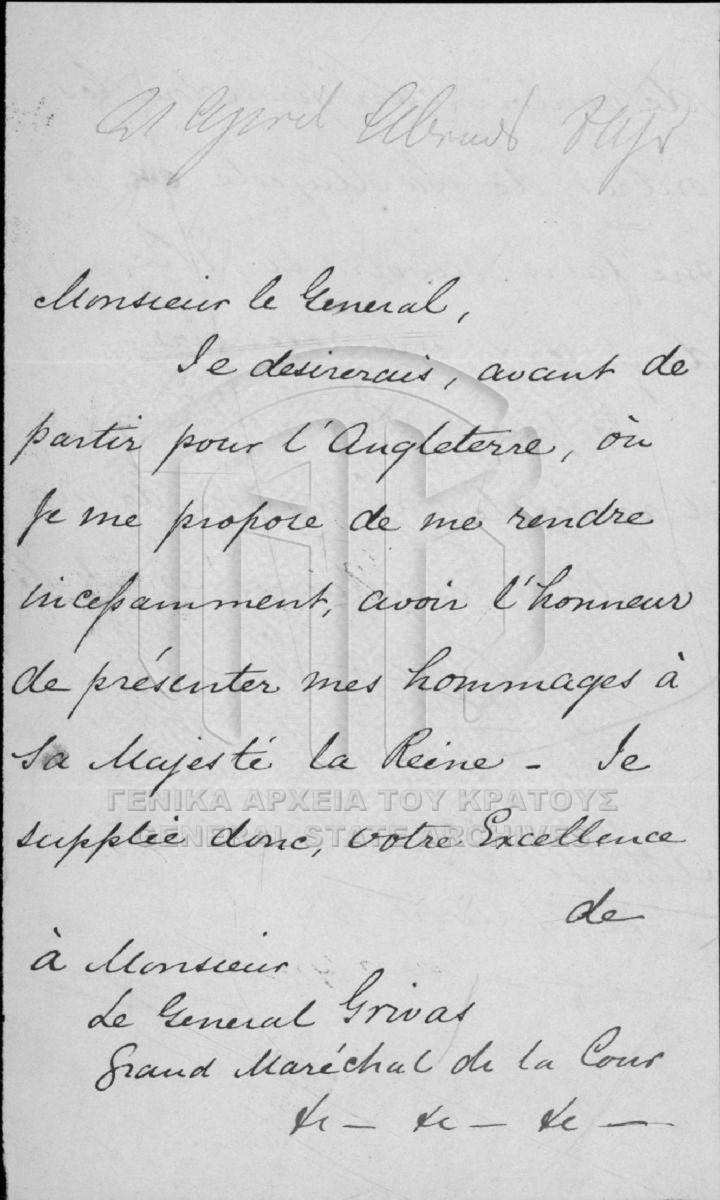 21 April Abends 7 Uhr
Monsieur le General,
Je desirerais, avant de
partir pour l'Angleterre, où
je me propose de me rendre
incessamment, avoir l'honneur
de présenter mes hommages à
Sa Majesté la Reine - Je
supplie donc, votre Excellence
de
à Monsieur
Le General Grivas
Grand Maréchal de la Cour
&c - &c - &c -
ΓΕΝΙΚΑ ΑΡΧΕΙΑ ΤΟΥ ΚΡΑΤΟΥΣ
GENERAL STATE ARCHIVES